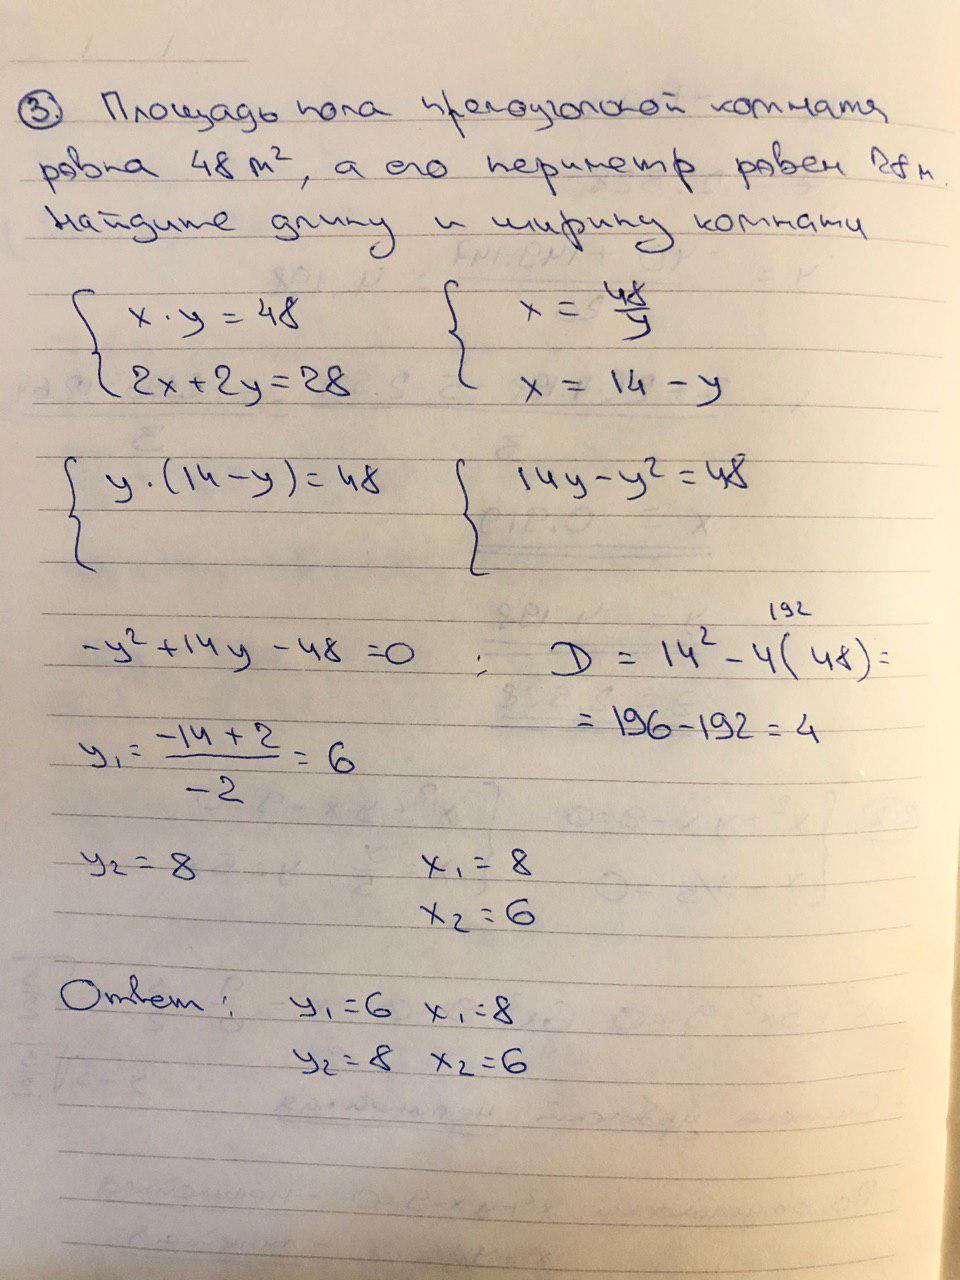 3. Площадь пола прямоугольной комнаты
равна 48 м², а его периметр равен 28 м.
Найдите длину и ширину комнаты
{ x · y = 48 { x = 48/y
2x + 2y = 28 x = 14 - y
{ y · (14 - y) = 48 { 14y - y² = 48
192
-y² + 14y - 48 = 0 ; D = 14² - 4( 48) =
= 196 - 192 = 4
y₁ = (-14 + 2)/(-2) = 6
y₂ = 8 x₁ = 8
x₂ = 6
Ответ: y₁ = 6 x₁ = 8
y₂ = 8 x₂ = 6